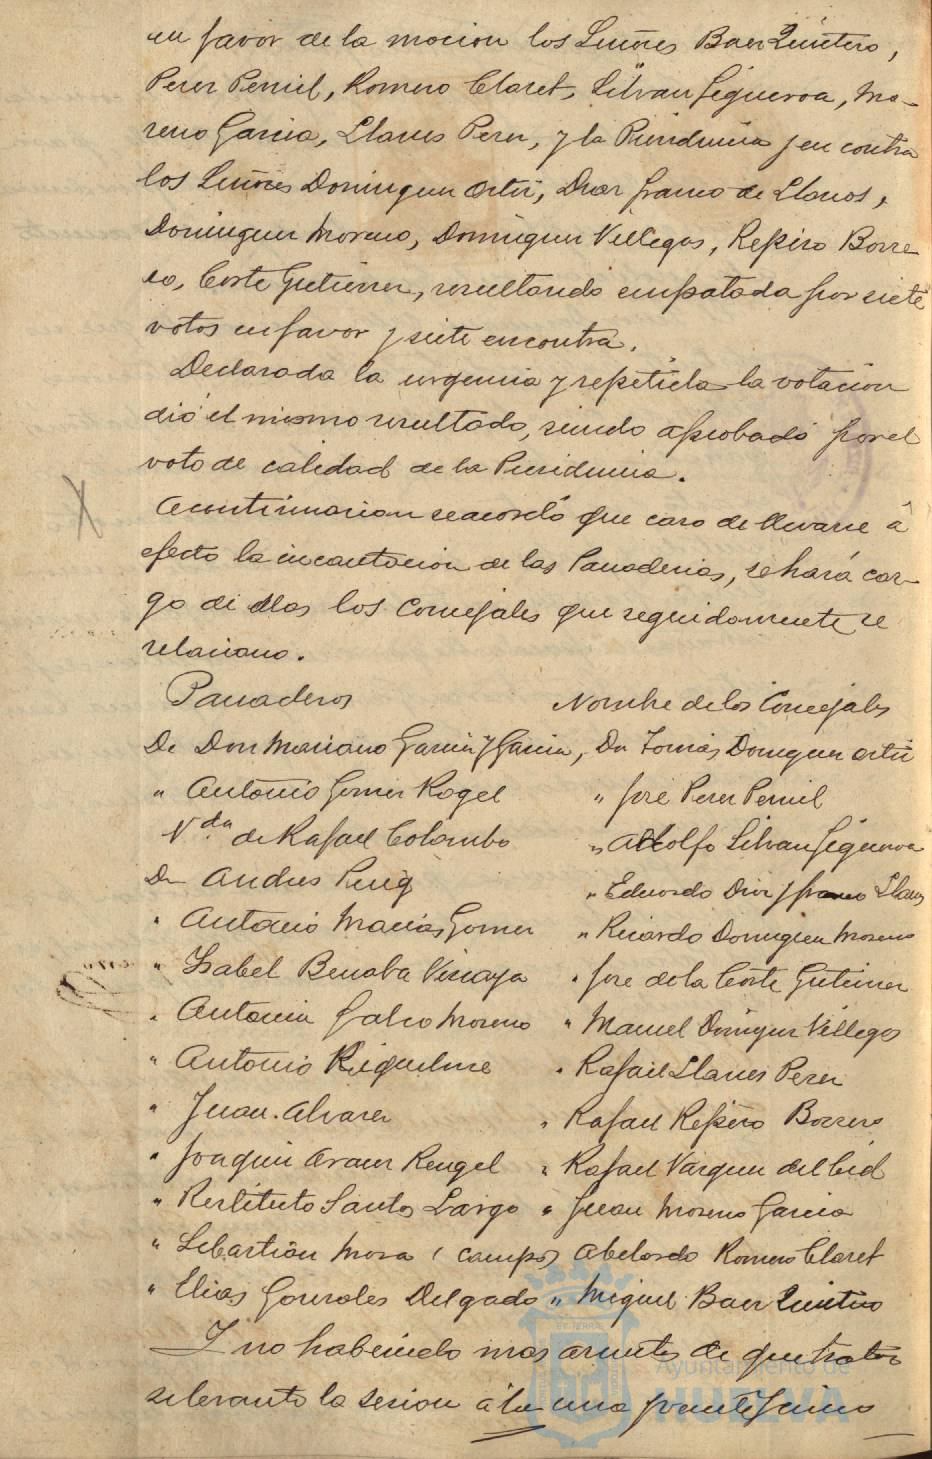 en favor de la mocion los Señores Baez Quintero,
Perez Pernil, Romero Claret, Silvan Figueroa, Mo-
reno Garcia, Llanes Perez, y la Presidencia y en contra
los Señores Dominguez Ortiz, Diaz franco de Llanos,
Dominguez Moreno, Dominguez Villegas, Repiso Borre-
ro, Corte Gutierrez, resultando empatada por siete
votos en favor y siete en contra.
Declarada la urgencia y repetida la votacion
dió el mismo resultado, siendo aprobado por el
voto de calidad de la Presidencia.
A continuacion se acordó que caso de llevarse á
efecto la incautacion de las Panaderias, se hará car-
go de ellas los Concejales que seguidamente se
relacionan.
Panaderos Nombre de los Concejales
De Don Mariano Garcia y Garcia, Dn Tomás Dominguez Ortiz
" Antonio Gomez Rogel " José Perez Pernil
Vda de Rafael Colombo " Adolfo Silvan Figueroa
Dn Andres Puig " Eduardo Diaz y franco Llanos
" Antonio Macias Gomez " Ricardo Dominguez Moreno
" Isabel Benaba Vizcaya " Jose de la Corte Gutierrez
" Antonia Galeo Moreno " Manuel Dominguez Villegas
" Antonio Riquelme " Rafael Llanes Perez
" Juan Alvarez " Rafael Repiso Borrero
" Joaquin Aranez Rengel " Rafael Vazquez del Cid
" Restituto Santos Largo " Juan Moreno Garcia
" Sebastián Mora (campo) Abelardo Romero Claret
" Elias Gonzales Delgado " Miguel Baez Quintero
Y no habiendo mas asuntos de que tratar
se levanto la sesion á la una
Ayuntamiento de
HUELVA